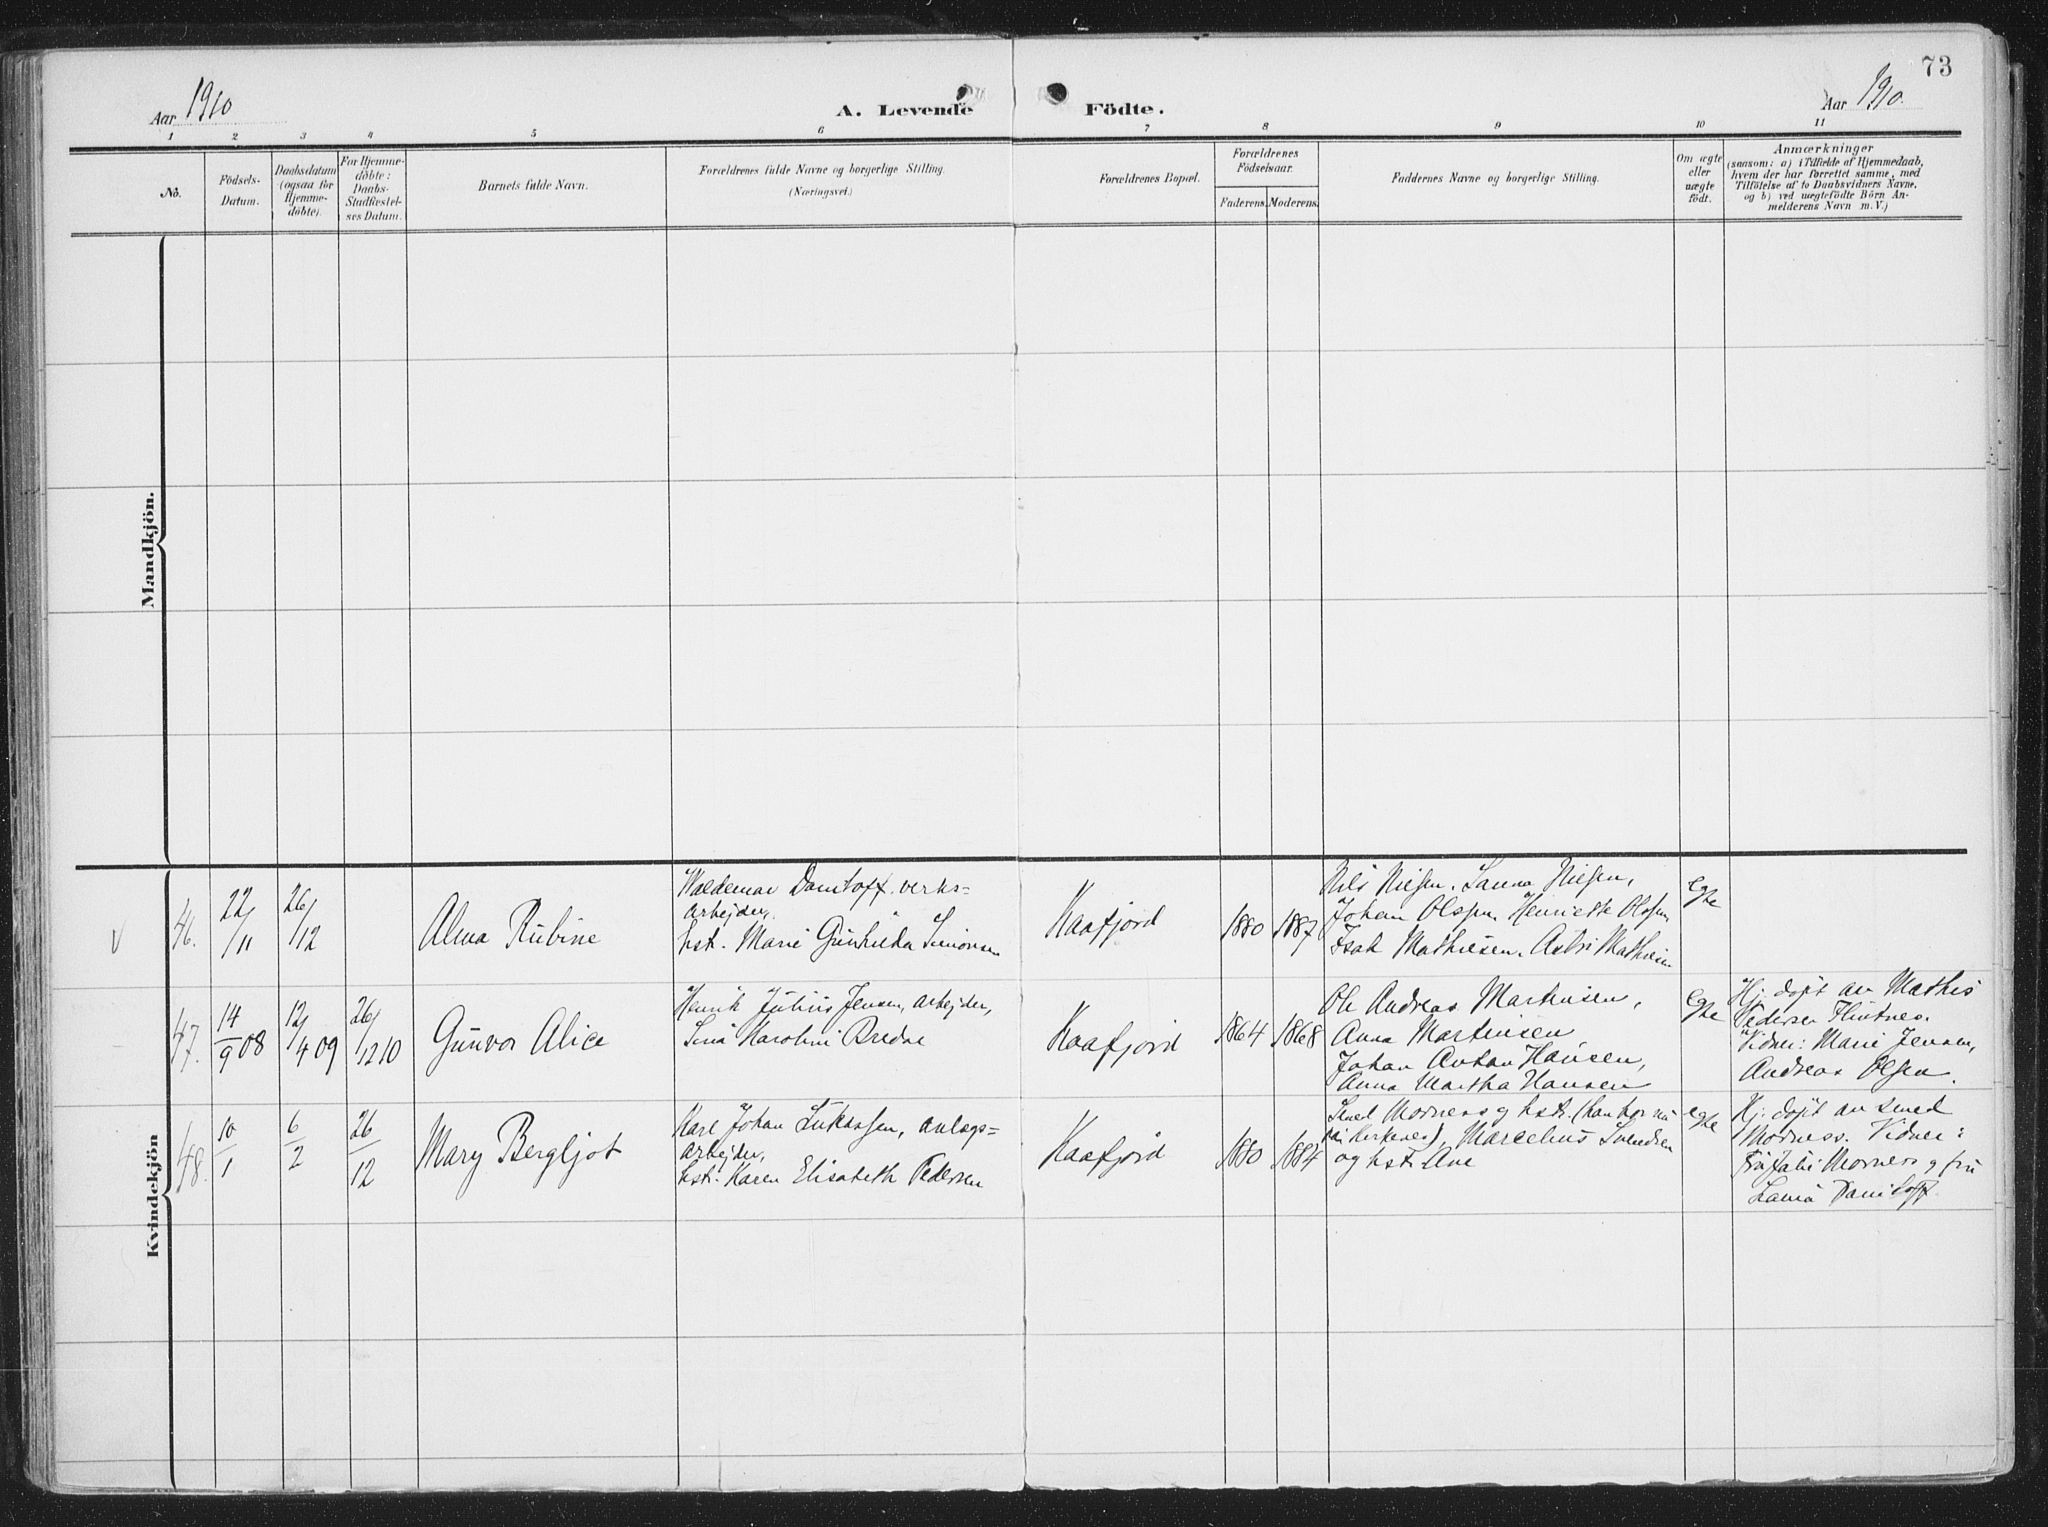 73
Aar 1910
A. Levende Födte.
Aar 1910.
1 2 3 4 5 6 7 8 9 10 11
No.
Födsels-
Datum.
Daabsdatum
(ogsaa for
Hjemme-
döbte).
For Hjemme-
döbte:
Daabs-
Stadfæstel-
ses Datum.
Barnets fulde Navn.
Forældrenes fulde Navne og borgerlige Stilling.
(Næringsvei.)
Forældrenes Bopæl.
Forældrenes
Födselsaar.
Faderens. Moderens.
Faddernes Navne og borgerlige Stilling.
Om ægte
eller
uægte
födt.
Anmærkninger
(saasom: a) i Tilfælde af Hjemmedaab,
hvem der har forrettet samme, med
Tilföielse af to Daabsvidners Navne,
og b) ved uægtefödte Börn An-
melderens Navn m. V.)
Mandkjön.
Kvindekjön
V
46.
22/11
26/12
Alma Rubine
Waldemar verks=
arbejder,
hst. Marie Gunhilda Simonsen
Kaafjord
1880 1887
Nils Nilsen.
Johan Olsen, Henriette Olsen,
Isak Mathisen. Mathisen
egte
47.
14/9 08
12/4 09
26/12 10
Gunvor Alice
Henrik Julius Jensen, arbejder,
Karoline Bredne
Kaafjord
1864 1868
Ole Andreas Martinsen,
Anna Martinsen
Johan Anton Hansen,
Anna Martha Hansen
egte
Hj. døpt av Mathis
Pedersen Flintnes.
Vidner: Marie Jensen,
Andreas Olsen.
48.
10/1
6/2
26/12
Mary Bergljot
Karl Johan Lukassen, anlegs=
arbejder,
hst. Karen Elisabeth Pedersen
Kaafjord
1880 1884
Smed Morness og hst. (han bor nu
i Kirkenes), Marcelius Svendsen
og hst. Ane
egte
Hj. døpt av smed
Morness. Vidner:
Fru Morness og fru